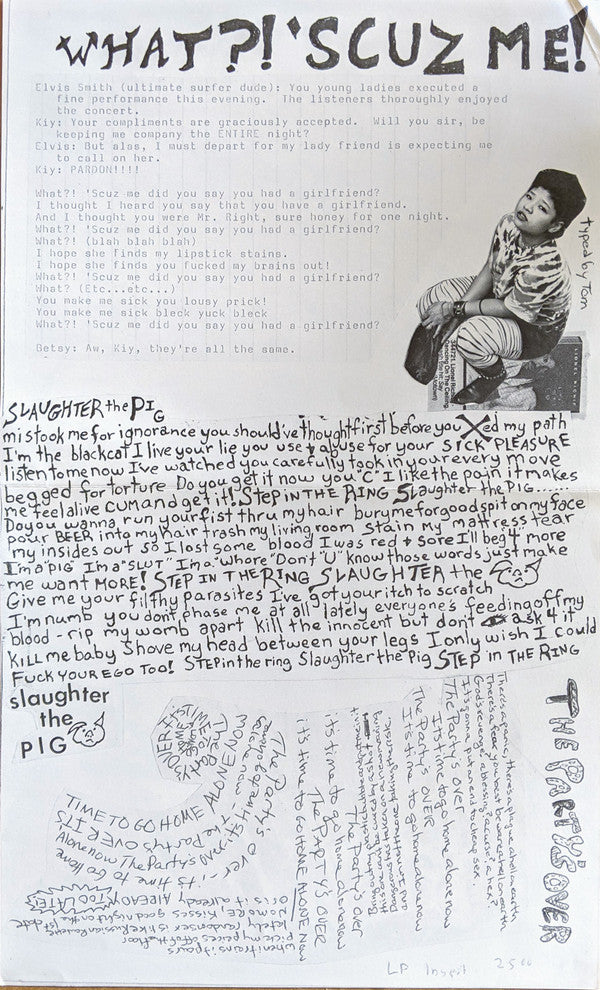 WHAT?! 'SCUZ ME!
Elvis Smith (ultimate surfer dude): You young ladies executed a
fine performance this evening. The listeners thoroughly enjoyed
the concert.
Kiy: Your compliments are graciously accepted. Will you sir, be
keeping me company the ENTIRE night?
Elvis: But alas, I must depart for my lady friend is expecting me
to call on her.
Kiy: PARDON!!!!
What?! 'Scuz me did you say you had a girlfriend?
I thought I heard you say that you have a girlfriend.
And I thought you were Mr. Right, sure honey for one night.
What?! 'Scuz me did you say you had a girlfriend?
What?! (blah blah blah)
I hope she finds my lipstick stains.
I hope she finds you fucked my brains out!
What?! 'Scuz me did you say you had a girlfriend?
What? (Etc...etc...)
You make me sick you lousy prick!
You make me sick bleck yuck bleck
What?! 'Scuz me did you say you had a girlfriend?
Betsy: Aw, Kiy, they're all the same.
typed by Tom
LIONEL RICHIE
SLAUGHTER the PIG
mistook me for ignorance you should've thought first before you Xed my path
I'm the blackcat I live your lie you use & abuse for your SICK PLEASURE
listen to me now I've watched you carefully took in your every move
begged for torture Do you get it now you "C" I like the pain it makes
me feel alive CUM AND get it! STEP IN THE RING Slaughter the PIG....
Do you wanna run your fist thru my hair bury me for good spit on my face
pour BEER into my hair trash my living room stain my mattress tear
my insides out so I lost some blood I was red & sore I'll beg 4 more
I'm a "pig" I'm a "SLUT" I'm a "Whore" Don't "U" know those words just make
me want MORE! STEP IN THE RING SLAUGHTER the
Give me your filthy parasites I've got your itch to scratch
I'm numb you don't phase me at all lately everyone's feeding off my
blood - rip my womb apart kill the innocent but don't ask 4 it
Kill me baby shove my head between your legs I only wish I could
FUCK YOUR EGO TOO! STEP in the ring Slaughter the Pig STEP IN THE RING
slaughter
the
PIG
THE PARTY'S OVER
There's a panic, there's a plague a hell on earth
God's revenge? a blessing? a curse? a hex?
It's gonna put an end to cheap sex.
The Party's over
It's time to go home alone now
The Party's OVER
It's time to go home alone now
The Party's over
it's time to go home alone now
The PARTY'S OVER
it's time to GO HOME ALONE NOW
The Party's over - it's time to go home
Alone now
TIME TO GO HOME ALONE NOW
when it rains it pours
lately random sex is like Russian Roulette
or is it already ALREADY TOO LATE!
LP Insert 25.00